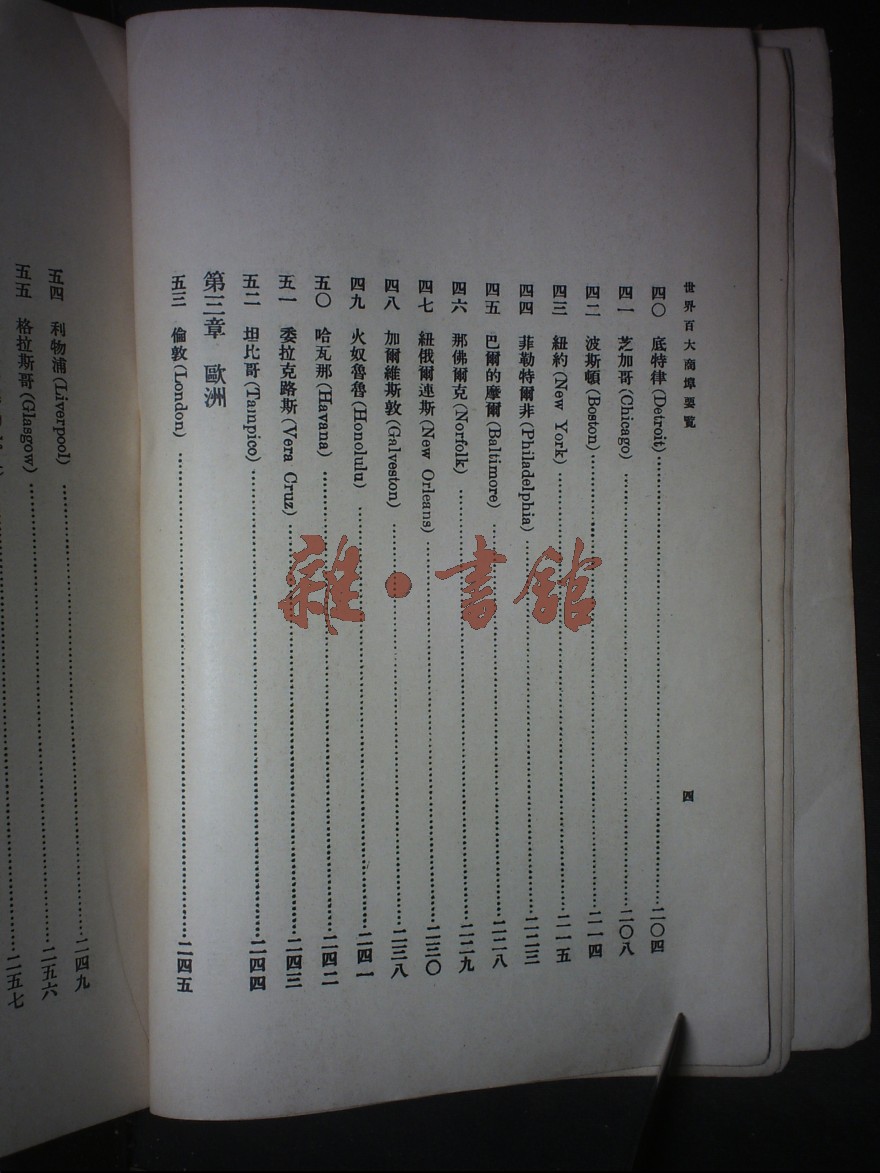 世界百大商埠要覽
四
四〇 底特律(Detroit)……二〇四
四一 芝加哥(Chicago)……二〇八
四二 波斯頓(Boston)……二一四
四三 紐約(New York)……二一五
四四 菲勒特爾非(Philadelphia)……二二三
四五 巴爾的摩爾(Baltimore)……二二八
四六 那佛爾克(Norfolk)……二二九
四七 紐俄爾連斯(New Orleans)……二三〇
四八 加爾維斯敦(Galveston)……二三八
四九 火奴魯魯(Honolulu)……二四一
五〇 哈瓦那(Havana)……二四二
五一 委拉克路斯(Vera Cruz)……二四三
五二 坦比哥(Tampico)……二四四
第三章 歐洲
五三 倫敦(London)……二四五
五四 利物浦(Liverpool)……二四九
五五 格拉斯哥(Glasgow)……二五六
……二五七
雜·書館